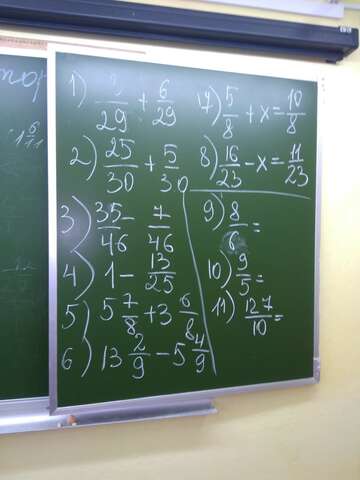 1) 3/29 + 6/29
2) 25/30 + 5/30
3) 35/46 - 7/46
4) 1 - 13/25
5) 5 7/8 + 3 6/8
6) 13 2/9 - 5 4/9
7) 5/8 + x = 10/8
8) 16/23 - x = 11/23
9) 8/6 =
10) 9/5 =
11) 127/10 =